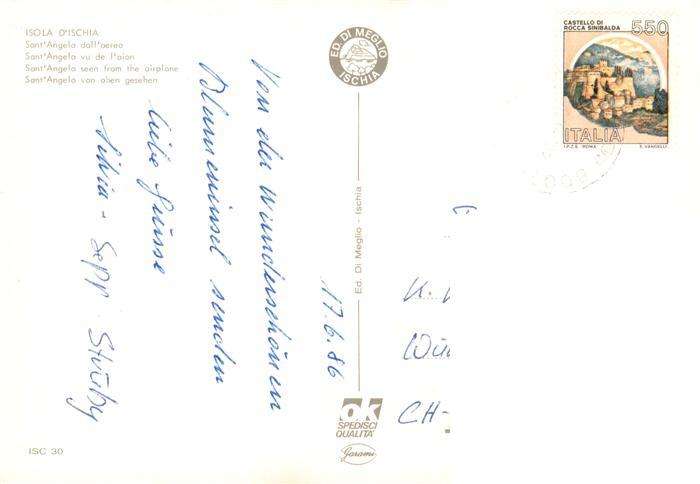 ISOLA D'ISCHIA
Sant'Angelo dall'aereo
Sant'Angelo vu de l'aion
Sant'Angelo seen from the airplane
Sant'Angelo von oben gesehen
ED. DI MEGLIO
ISCHIA
CASTELLO DI
ROCCA SINIBALDA
550
ITALIA
I.P.Z.S. ROMA
E. VANGELLI
17.6.86
Von der wunderschönen
Blumeninsel senden
liebe Grüsse
Silvia - Sepp
Ed. Di Meglio - Ischia
K.
CH-
ok
SPEDISCI
QUALITA'
Garami
ISC 30